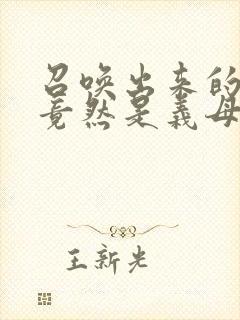 召唤出来的
竟然是义母
王新光